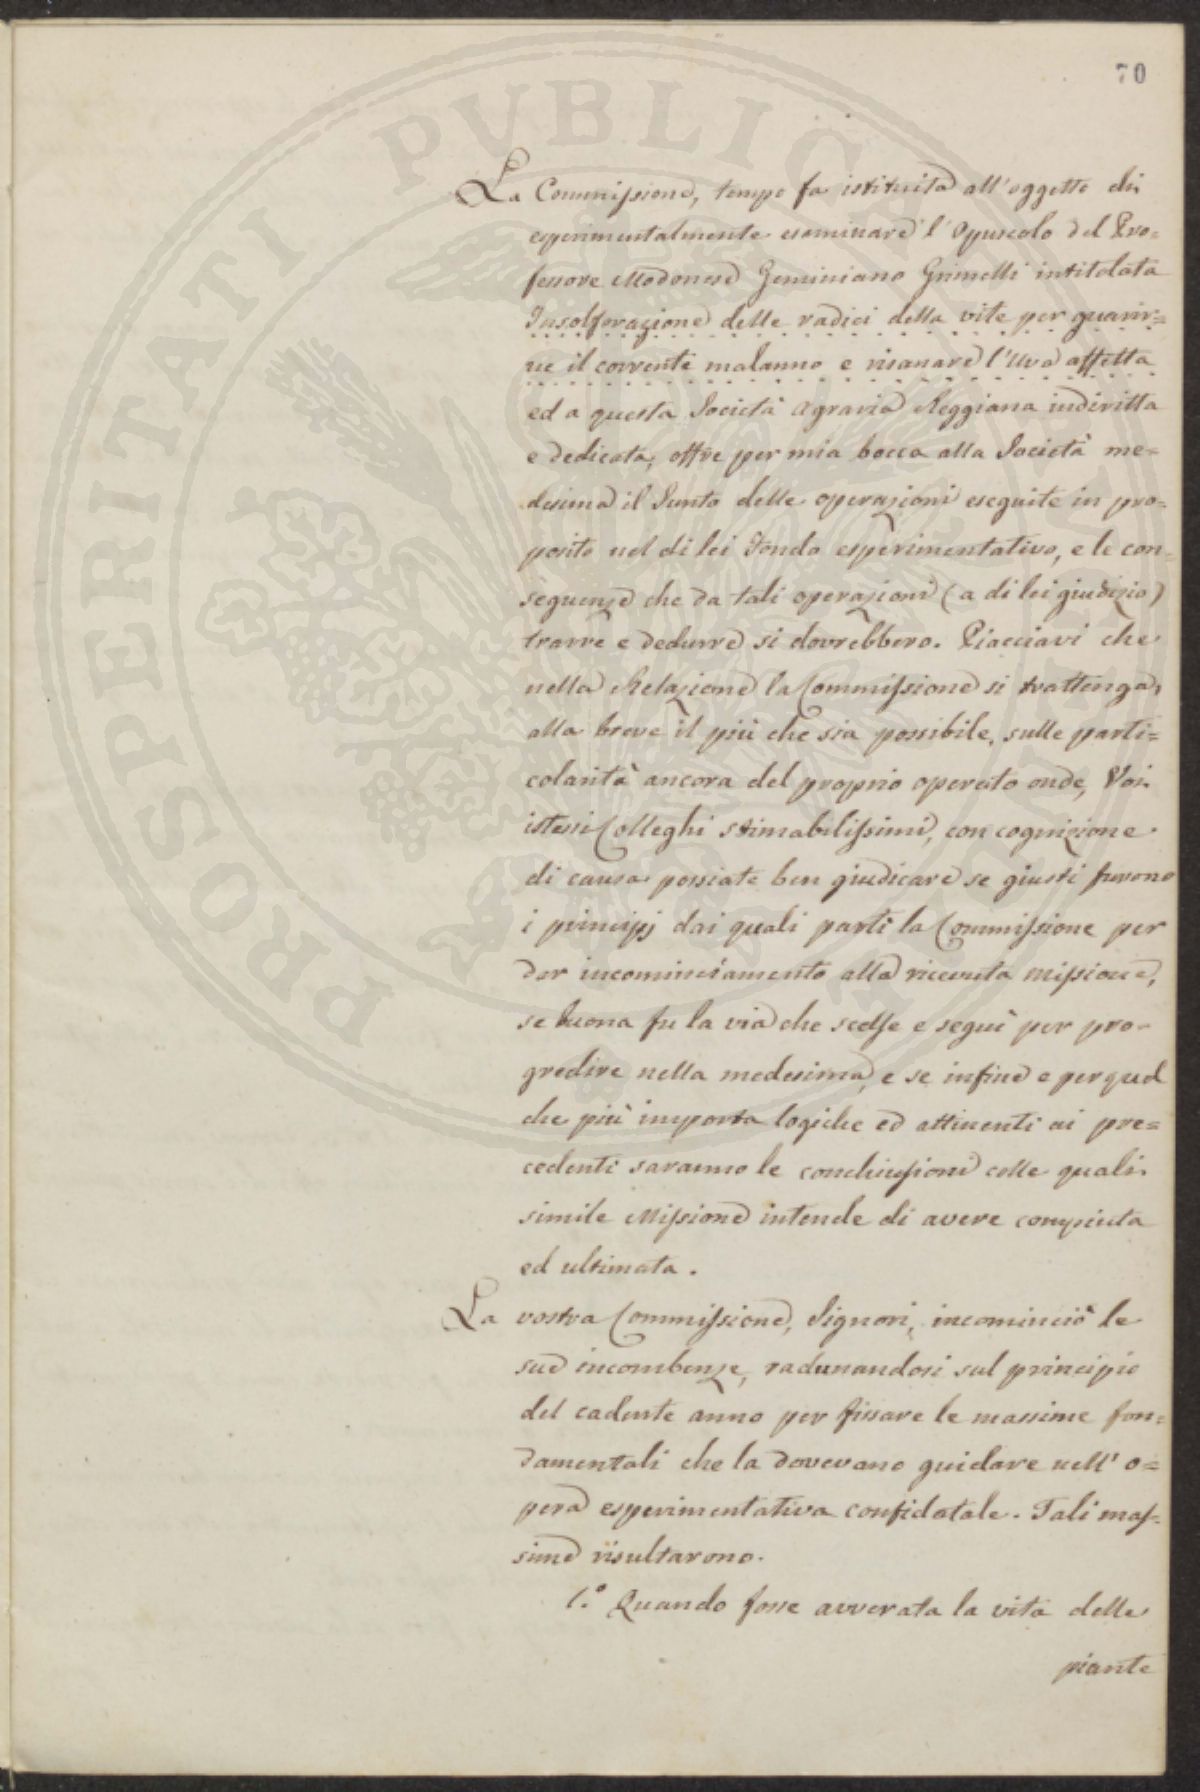 70
PROSPERITATI PUBLICAE
La Commissione, tempo fa istituita all'oggetto di
esperimentalmente esaminare l'Opuscolo del Pro=
fessore Modonese Geminiano Grimelli intitolata
Insolforazione delle radici della vite per guarir=
ne il corrente malanno e risanare l'Uva affetta
ed a questa Società Agraria Reggiana indiritta
e dedicata, offre per mia bocca alla Società me=
desima il Sunto delle operazioni eseguite in pro=
posito nel di lei Fondo esperimentativo, e le con=
seguenze che da tali operazioni (a di lei giudizio)
trarre e dedurre si dovrebbero. Piacciavi che
nella Relazione la Commissione si trattenga,
alla breve il più che sia possibile, sulle parti=
colarità ancora del proprio operato onde, Voi
istessi Colleghi stimabilissimi, con cognizione
di causa possiate ben giudicare se giusti furono
i principj dai quali partì la Commissione per
dar incominciamento alla ricevuta missione,
se buona fu la via che scelse e seguì per pro=
gredire nella medesima, e se infine e perquel
che più importa logiche ed attinenti ai pre=
cedenti saranno le conchiusioni colle quali
simile Missione intende di avere compiuta
ed ultimata.
La vostra Commissione, Signori, incominciò le
sue incombenze, radunandosi sul principio
del cadente anno per fissare le massime fon=
damentali che la dovevano guidare nell'o=
pera esperimentativa confidatale. Tali mas=
sime risultarono.
1.° Quando fosse avverata la vita delle
piante